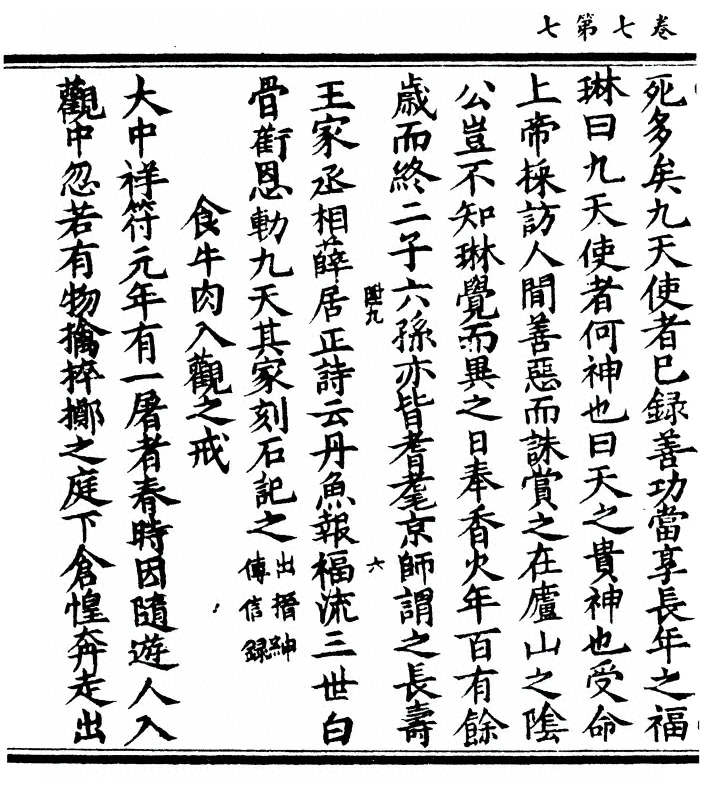 卷七第七
死多矣九天使者已録善功當享長年之福
琳曰九天使者何神也曰天之貴神也受命
上帝採訪人間善惡而誅賞之在廬山之隂
公豈不知琳覺而異之日奉香火年百有餘
歳而終二子六孫亦皆耆耄京師謂之長壽
王家丞相薛居正詩云丹魚報福流三世白
骨銜恩勅九天其家刻石記之
出搢紳
傳信録
食牛肉入觀之戒
大中祥符元年有一屠者春時因隨遊人入
觀中忽若有物擒捽擲之庭下倉惶奔走出
六